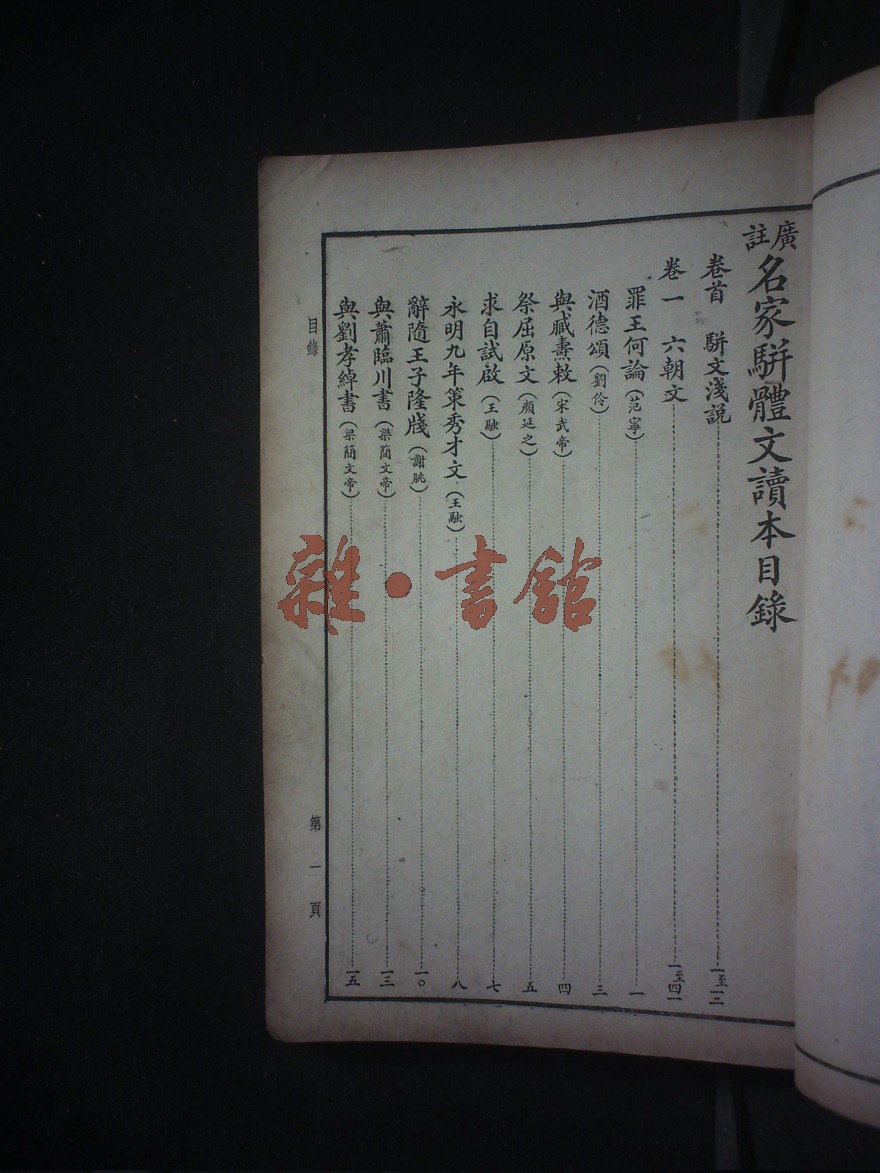 廣註名家駢體文讀本目錄
卷首　駢文淺説 一至一二
卷一　六朝文 一至四一
罪王何論（范寧） 一
酒德頌（劉伶） 三
與臧燾敕（宋武帝） 四
祭屈原文（顏延之） 五
求自試啟（王融） 七
永明九年策秀才文（王融） 八
辭隨王子隆牋（謝朓） 一〇
與蕭臨川書（梁簡文帝） 一三
與劉孝綽書（梁簡文帝） 一五
目錄
第一頁
雜·書館